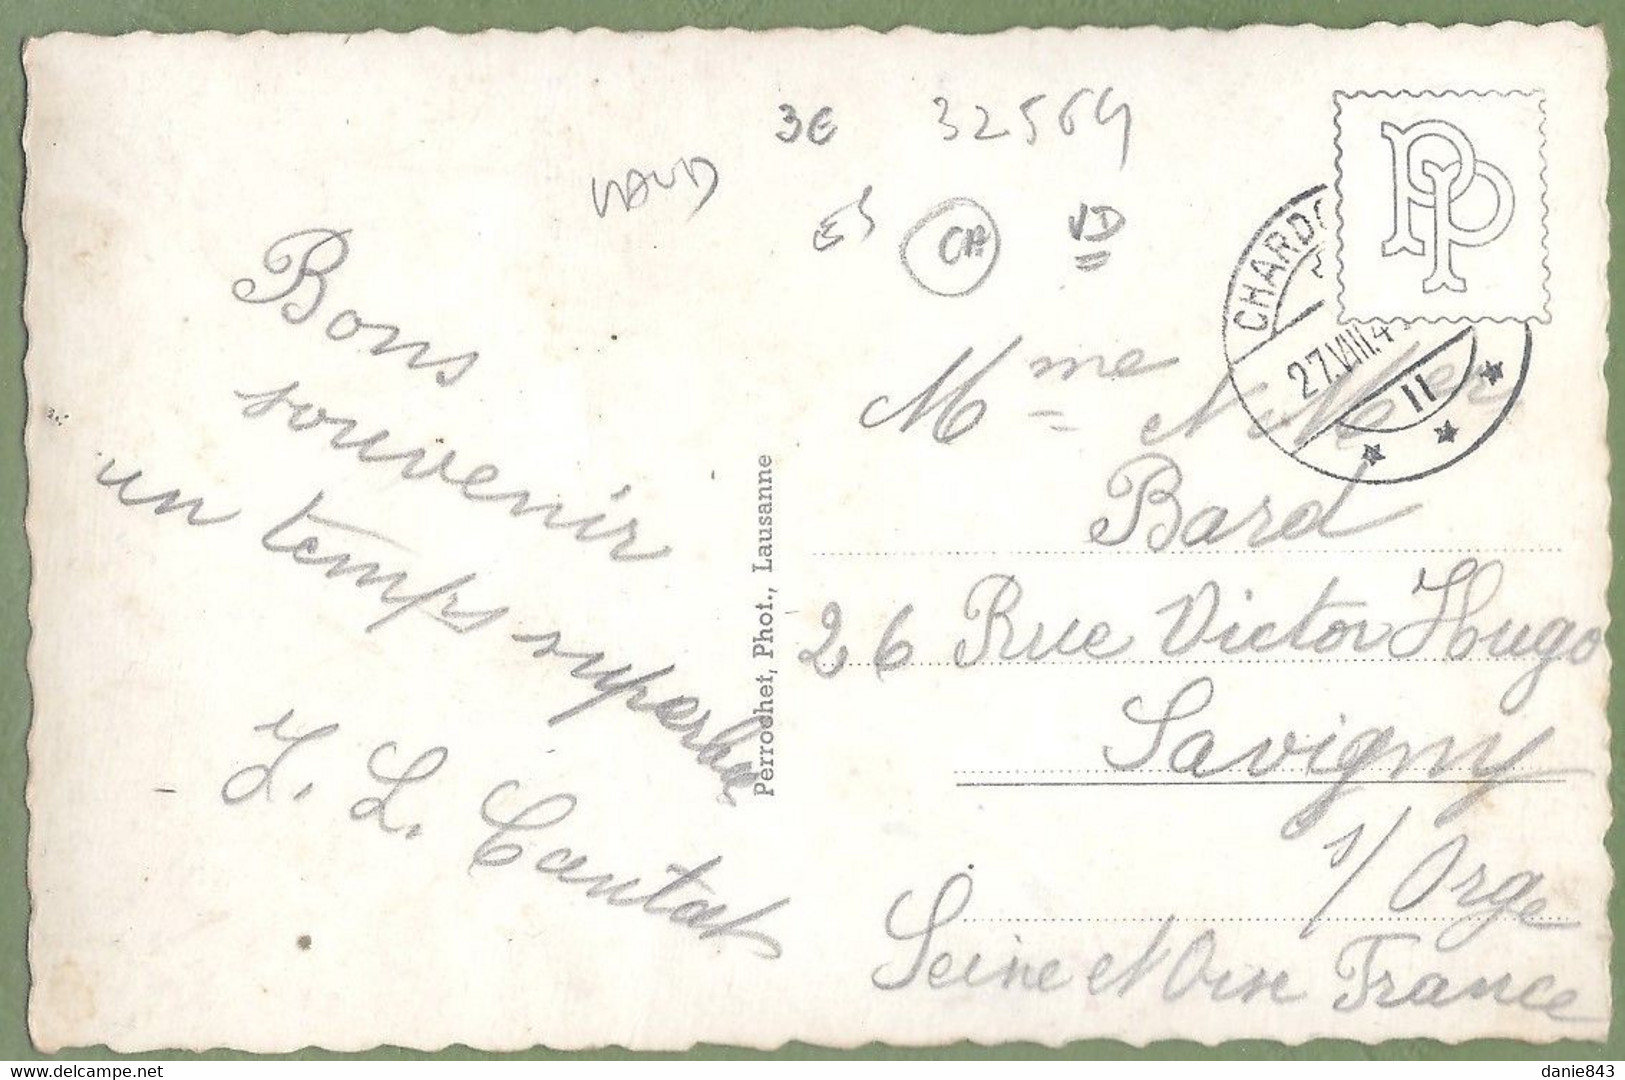 3€ 32564
VAUD
ES CH VD
CHARDO
27.VIII.4
II
PP
Bons
souvenir
un temps superbe
L. Cantat
Perrochet, Phot., Lausanne
Mme
Bard
26 Rue Victor Hugo
Savigny
s/ Orge
Seine et Oise France
delcampe.net
danie843